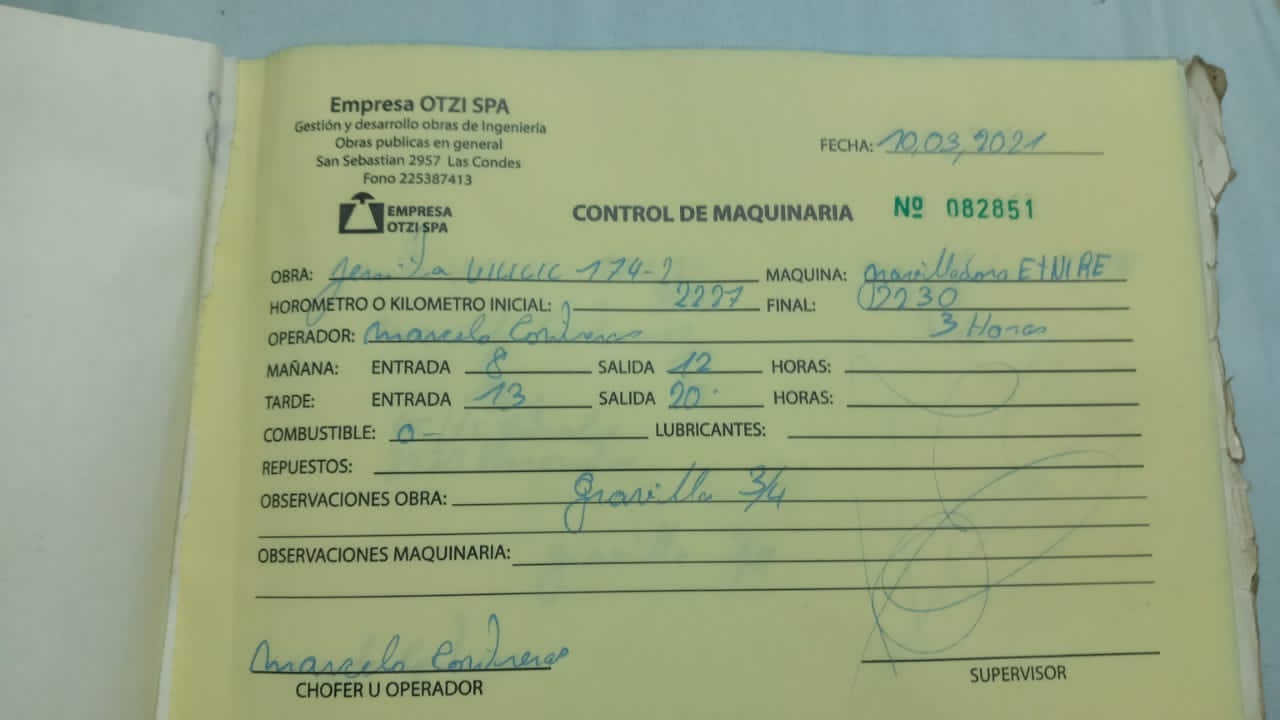 Empresa OTZI SPA
Gestión y desarrollo obras de Ingeniería
Obras publicas en general
San Sebastian 2957 Las Condes
Fono 225387413
FECHA: 10,03,2021
EMPRESA
OTZI SPA
CONTROL DE MAQUINARIA
Nº 082851
OBRA: 174-2 MAQUINA: gravilladora ETNIRE
HOROMETRO O KILOMETRO INICIAL: 2227 FINAL: 2230
OPERADOR: Marcelo Contreras 3 Horas
MAÑANA: ENTRADA 8 SALIDA 12 HORAS:
TARDE: ENTRADA 13 SALIDA 20 HORAS:
COMBUSTIBLE: 0- LUBRICANTES:
REPUESTOS:
OBSERVACIONES OBRA: gravilla 3/4
OBSERVACIONES MAQUINARIA:
Marcelo Contreras
CHOFER U OPERADOR
SUPERVISOR